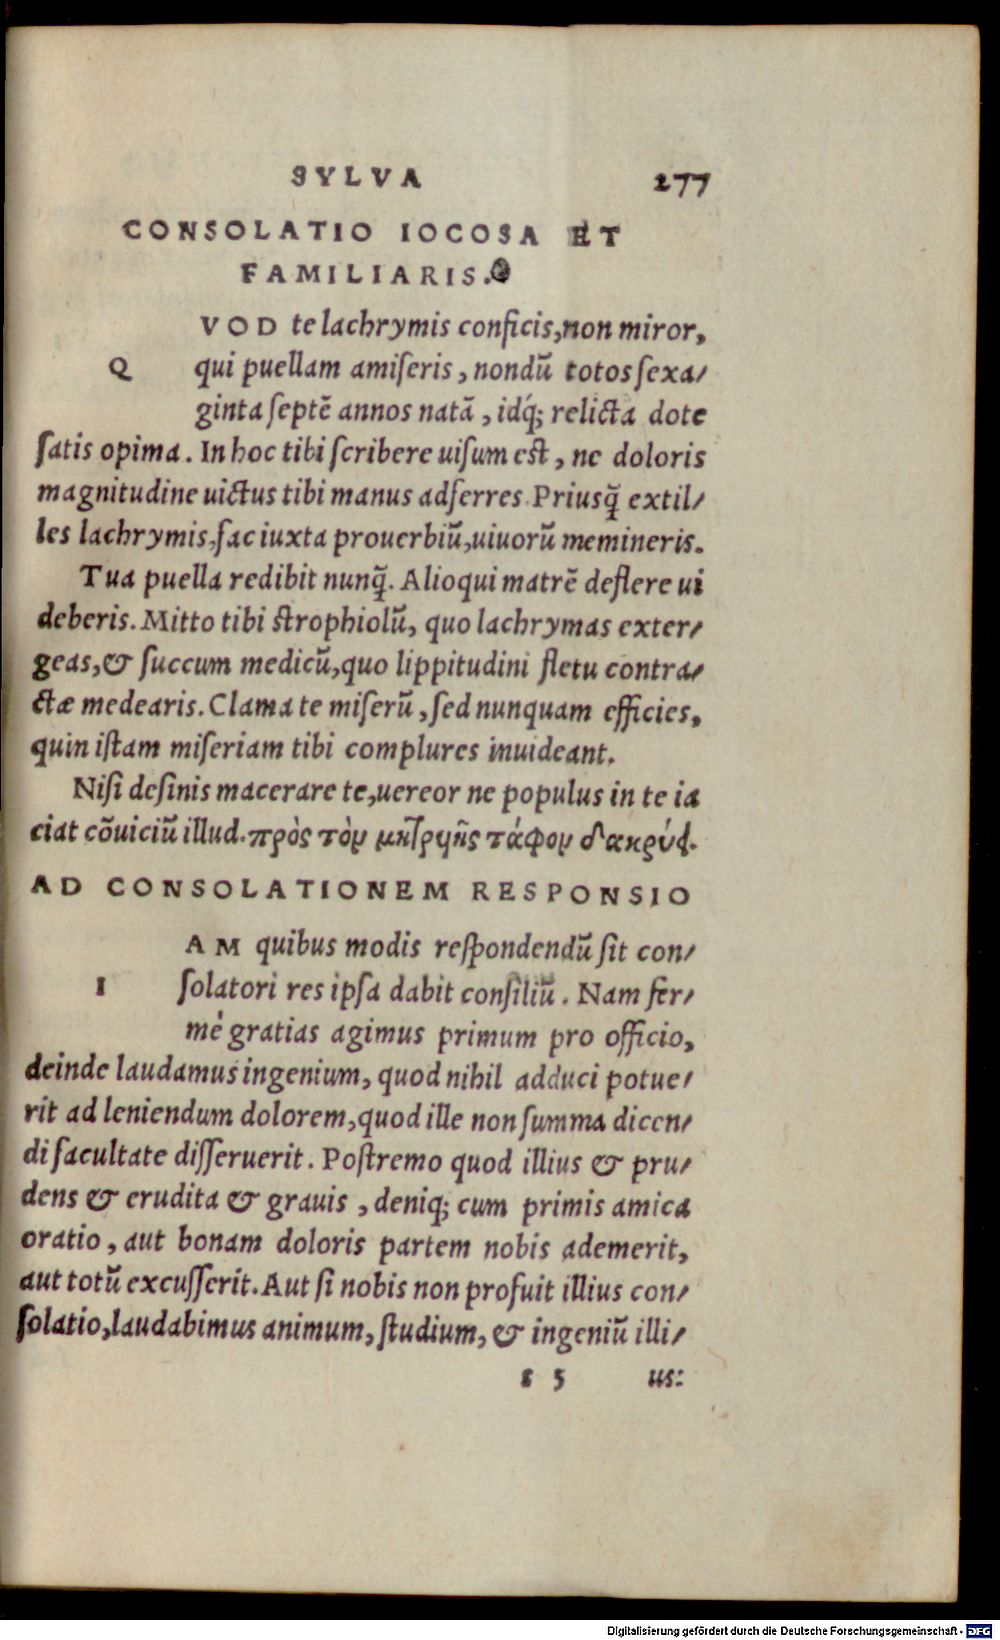 SYLVA 277
CONSOLATIO IOCOSA ET
FAMILIARIS.
QVOD te lachrymis conficis, non miror,
qui puellam amiſeris, nondũ totos ſexa/
ginta ſeptẽ annos natã, idq́; relicta dote
ſatis opima. In hoc tibi ſcribere uiſum eſt, ne doloris
magnitudine uictus tibi manus adferres. Priusq̃ extil/
les lachrymis, fac iuxta prouerbiũ, uiuorũ memineris.
Tua puella redibit nunq̃. Alioqui matrẽ deflere ui
deberis. Mitto tibi ſtrophiolũ, quo lachrymas exter/
geas, & ſuccum medicũ, quo lippitudini fletu contra/
ctæ medearis. Clama te miſerũ, ſed nunquam efficies,
quin iſtam miſeriam tibi complures inuideant.
Niſi deſinis macerare te, uereor ne populus in te ia
ciat cõuiciũ illud. πρὸς τὸν μητρυῆς τάφον δακρύεις.
AD CONSOLATIONEM RESPONSIO
IAM quibus modis reſpondendũ ſit con/
ſolatori res ipſa dabit conſiliũ. Nam fer/
mè gratias agimus primum pro officio,
deinde laudamus ingenium, quod nihil adduci potue/
rit ad leniendum dolorem, quod ille non ſumma dicen/
di facultate diſſeruerit. Poſtremo quod illius & pru/
dens & erudita & grauis, deniq; cum primis amica
oratio, aut bonam doloris partem nobis ademerit,
aut totũ excuſſerit. Aut ſi nobis non profuit illius con/
ſolatio, laudabimus animum, ſtudium, & ingeniũ illi/
s 5 us:
Digitalisierung gefördert durch die Deutsche Forschungsgemeinschaft - DFG